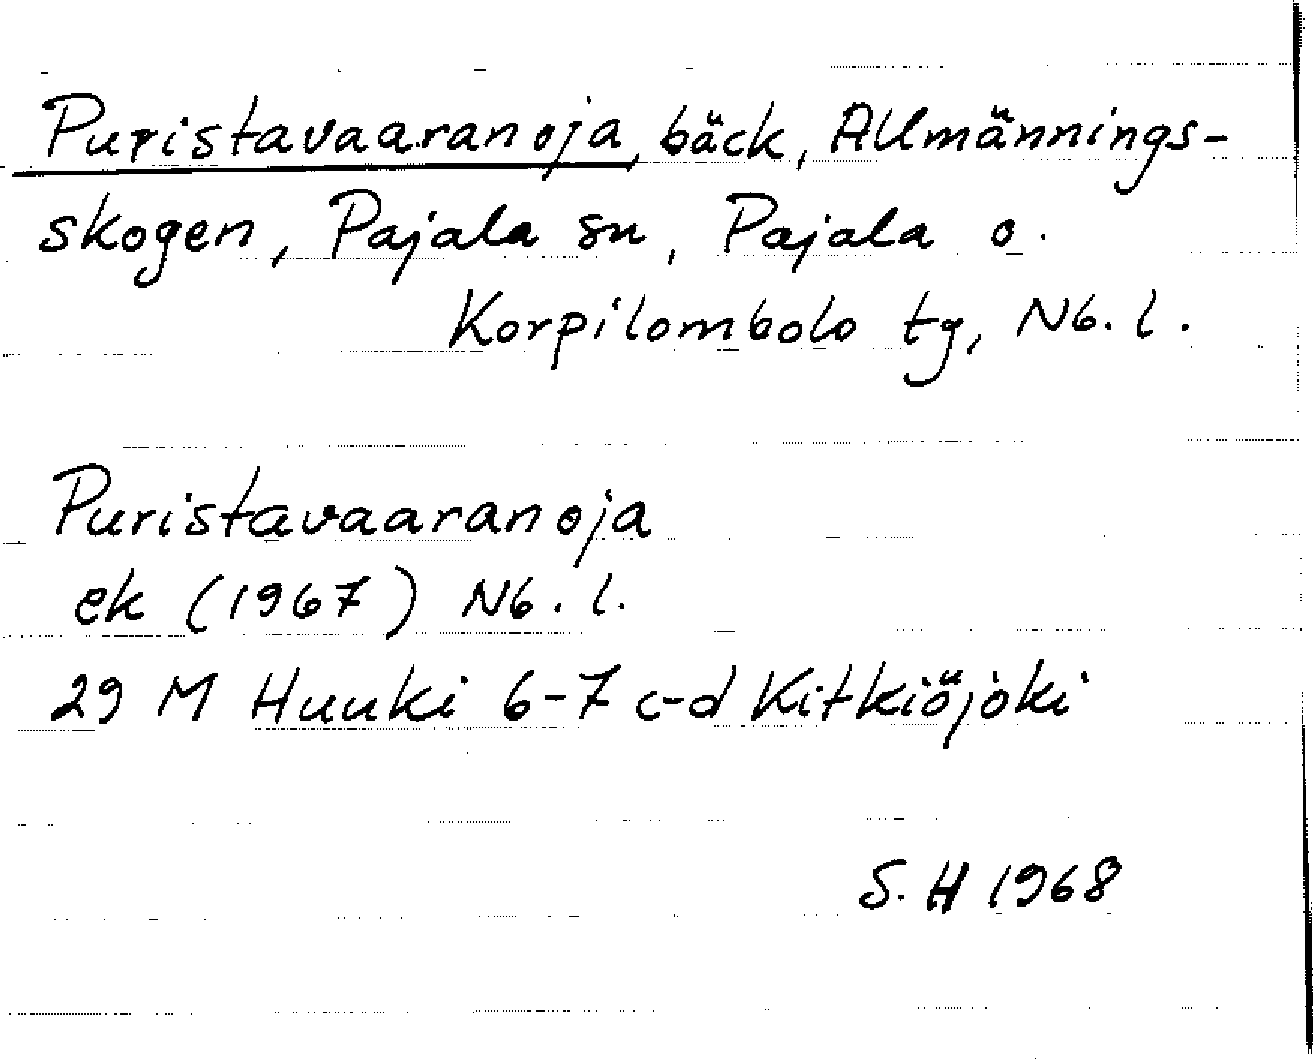 Puristavaaranoja, bäck, Allmännings-
skogen, Pajala sn, Pajala o.
Korpilombolo tg, Nb. l.
Puristavaaranoja
ek (1967) Nb. l.
29 M Huuki 6-7 c-d Kitkiöjoki
S. H 1968